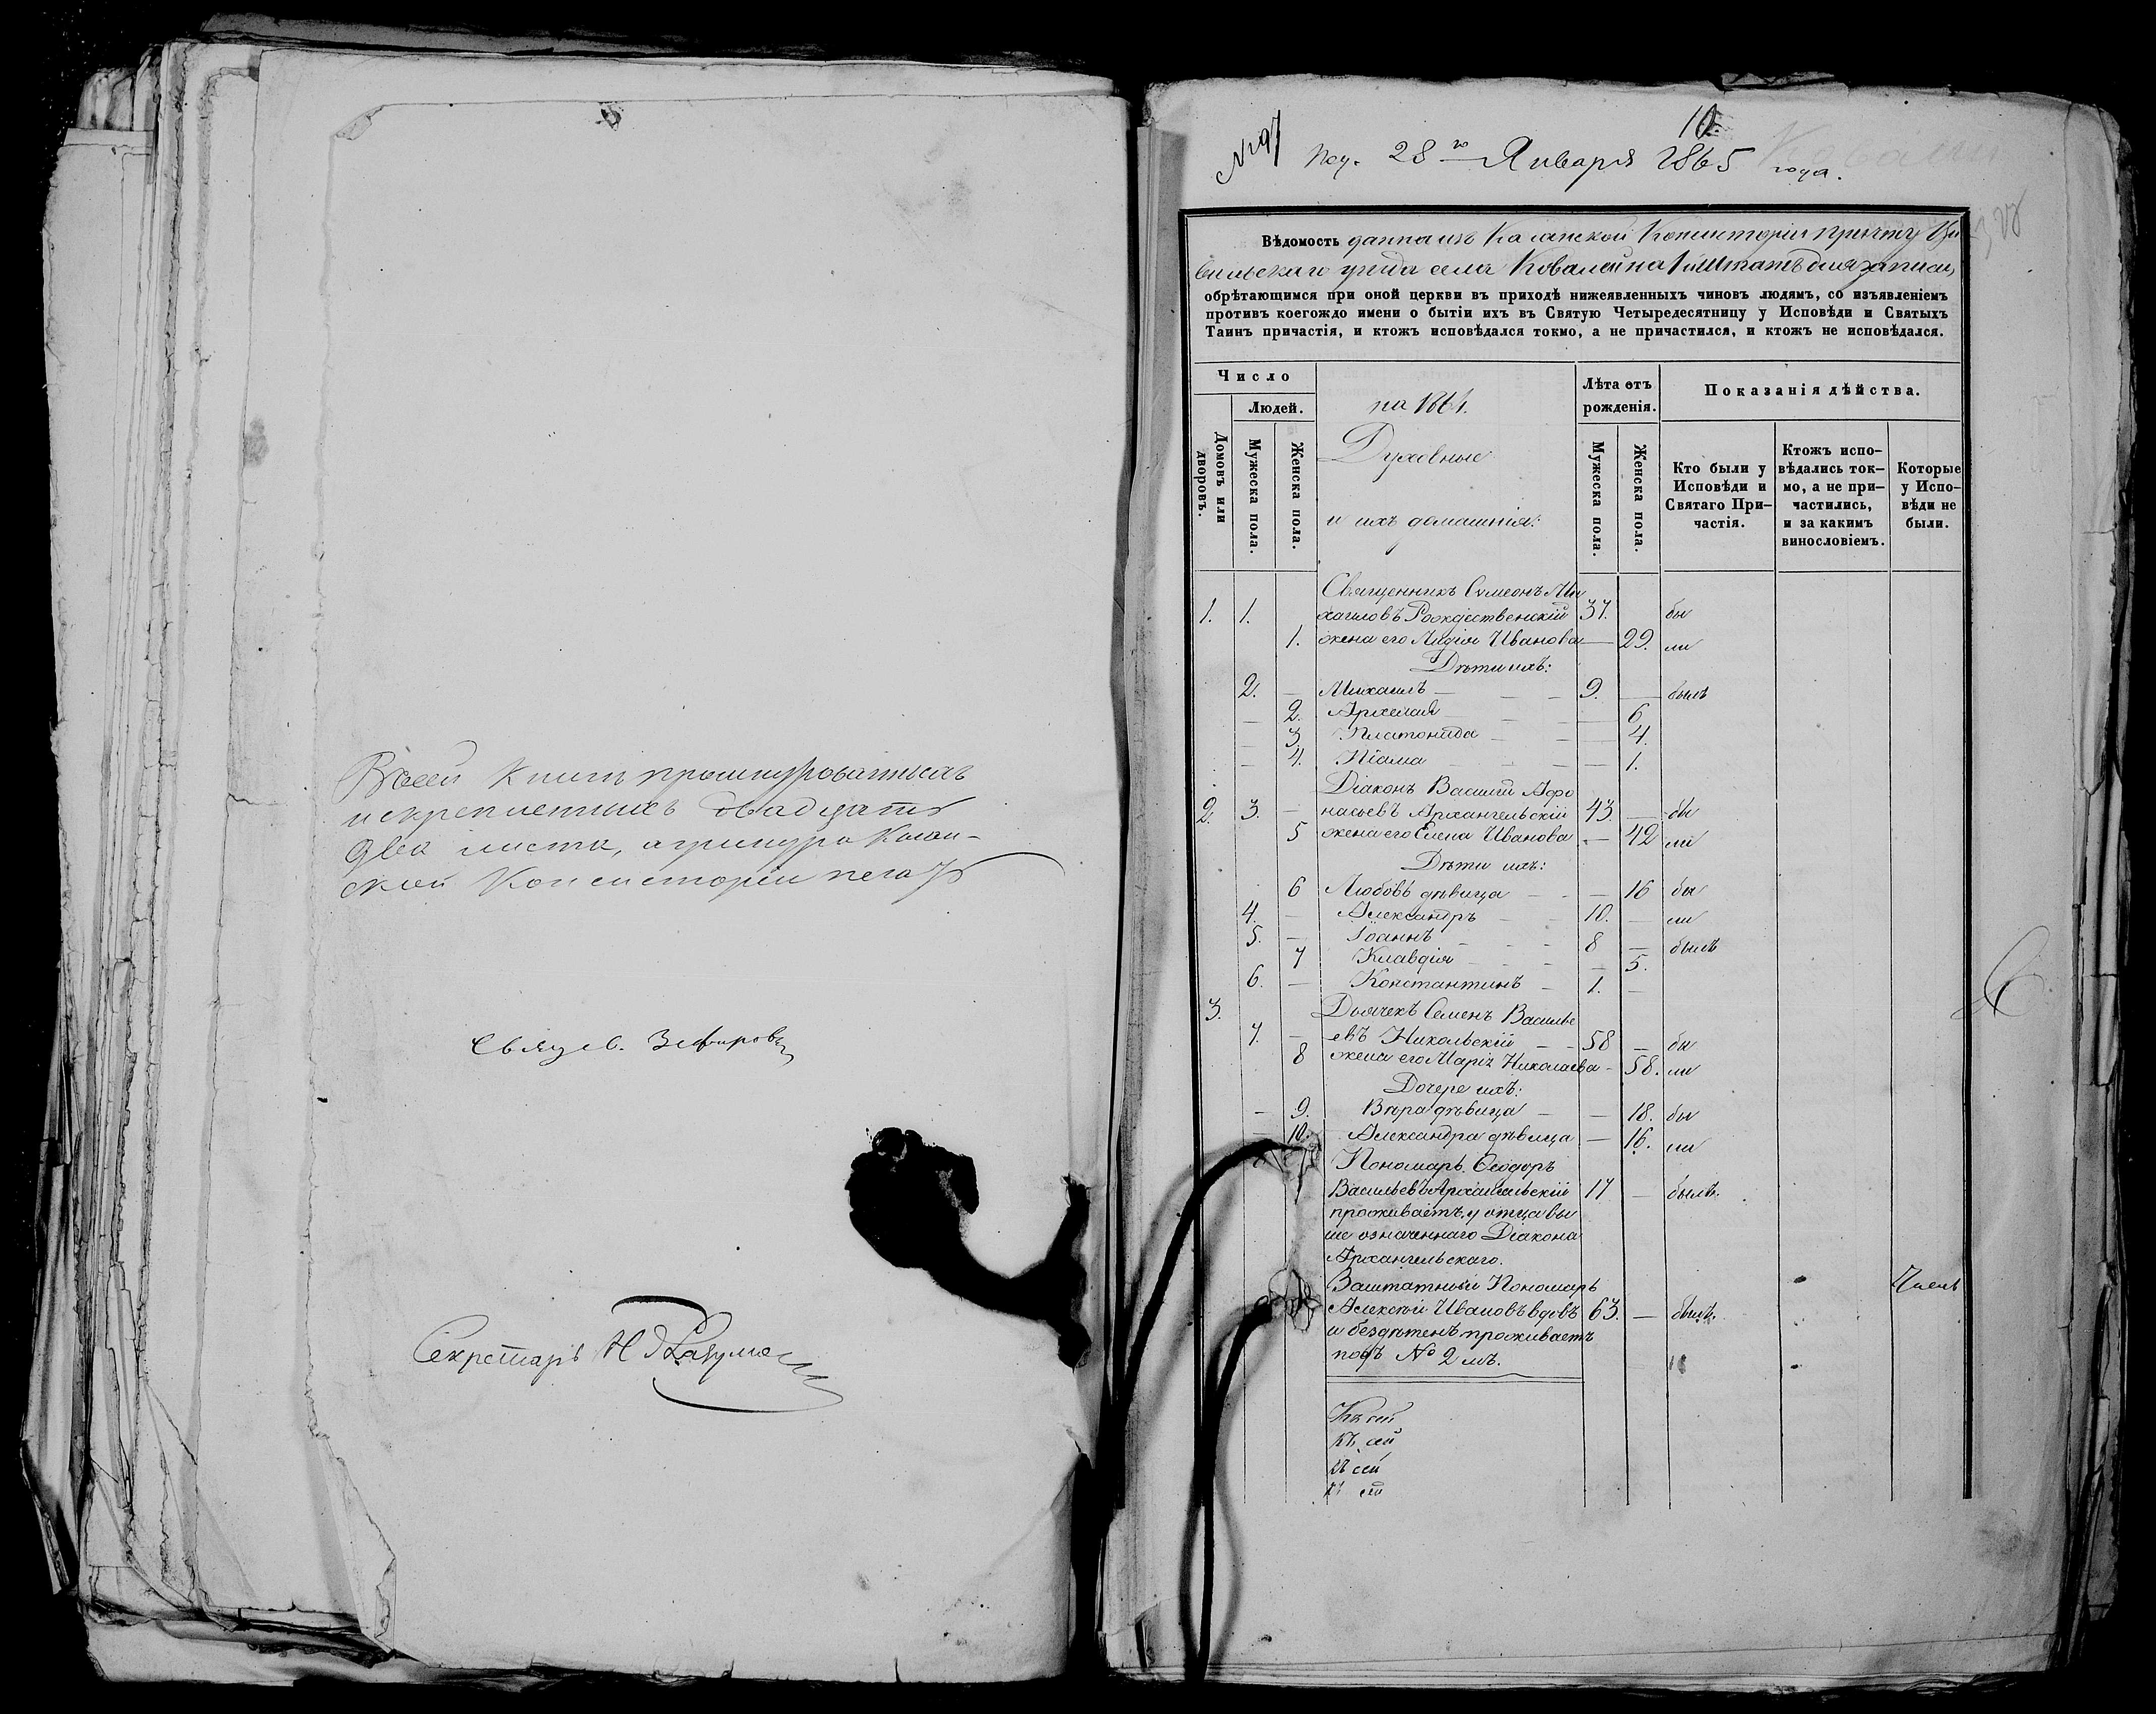 Въ сей книгѣ прошнурованныхъ
и скрепленныхъ двадцать
два листа, а у шнура Казан-
ской Консисторіи печать
Священ. Зефировъ
Секретарь Н. Разумо
№ 97
10.
Пол. 28го Января 1865 года.
Вѣдомость данная изъ Казанской Консисторіи причту Ци
вильскаго уѣзда села Ковалей на 1й Штатъ для записи,
обрѣтающимся при оной церкви въ приходѣ нижеявленныхъ чиновъ людямъ, со изъявленіемъ
противъ коегождо имени о бытіи ихъ въ Святую Четыредесятницу у Исповѣди и Святыхъ
Таинъ причастія, и ктожъ исповѣдался токмо, а не причастился, и ктожъ не исповѣдался.
Число
Людей.
Домовъ или дворовъ.
Мужеска пола.
Женска пола.
на 1864.
Духовные
и ихъ домашнія:
Лѣта отъ рожденія.
Мужеска пола.
Женска пола.
Показанія дѣйства.
Кто были у Исповѣди и Святаго При-частія.
Ктожъ испо-вѣдались ток-мо, а не при-частились, и за какимъ винословіемъ.
Которые у Испо-вѣди не были.
Священникъ Симеонъ Ми
1. 1. хаиловъ Рождественскій 37. бы
1. жена его Лидія Иванова — 29. ли
Дѣти ихъ:
2. — Михаилъ — 9. — былъ
— 2. — 6
— 3. Платонида — 4.
— 4. — 1.
Діаконъ Василій Афо
2. 3. — насьевъ Архангельскій 43. — бы
5 жена его Елена Иванова — 42 ли
Дѣти ихъ:
6 Любовь дѣвица — 16 бы
4. — Александръ — 10. — ли
5. — Іоаннъ — 8 — былъ
7 Клавдія — 5.
6. — Константинъ — 1. —
3. Дьячекъ Семенъ Василье
7. — евъ Никольскій — 58 — бы
8 жена его Марія Николаева — 58. ли
Дочере ихъ:
— 9. Вѣра дѣвица — 18. бы
— 10. Александра дѣвица — 16. ли
Пономарь Ѳеодоръ
Васильевъ Архангельскій 17 — былъ.
проживаетъ у отца вы
ше означеннаго Діакона
Архангельскаго.
Заштатный Пономарь
Алексѣй Ивановъ вдовъ 63. — былъ.
и бездѣтенъ проживаетъ
подъ № 2мъ.
Къ сей
къ сей
къ сей
къ сей